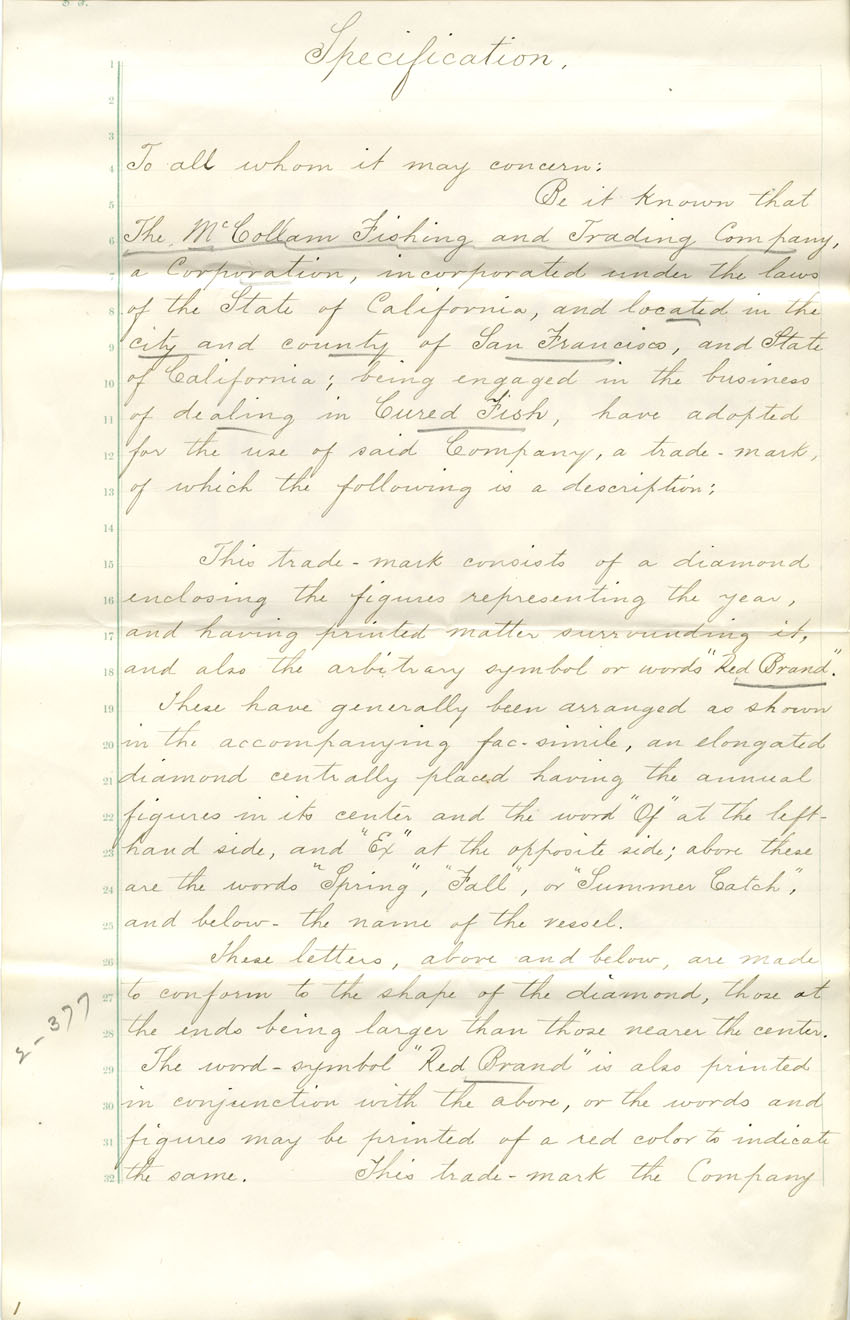 Specification.
1
2
3
4 To all whom it may concern:
5 Be it known that
6 The McCollam Fishing and Trading Company,
7 a Corporation, incorporated under the laws
8 of the State of California, and located in the
9 city and county of San Francisco, and State
10 of California; being engaged in the business
11 of dealing in Cured Fish, have adopted
12 for the use of said Company, a trade-mark,
13 of which the following is a description:
14
15 This trade-mark consists of a diamond
16 enclosing the figures representing the year,
17 and having printed matter surrounding it,
18 and also the arbitrary symbol or words "Red Brand".
19 These have generally been arranged as shown
20 in the accompanying fac-simile, an elongated
21 diamond centrally placed having the annual
22 figures in its center and the word "Of" at the left-
23 hand side, and "Ex" at the opposite side; above these
24 are the words "Spring", "Fall", or "Summer Catch",
25 and below- the name of the vessel.
26 These letters, above and below, are made
27 to conform to the shape of the diamond, those at
28 the ends being larger than those nearer the center.
29 The word-symbol "Red Brand" is also printed
30 in conjunction with the above, or the words and
31 figures may be printed of a red color to indicate
32 the same. This trade-mark the Company
2-377
1